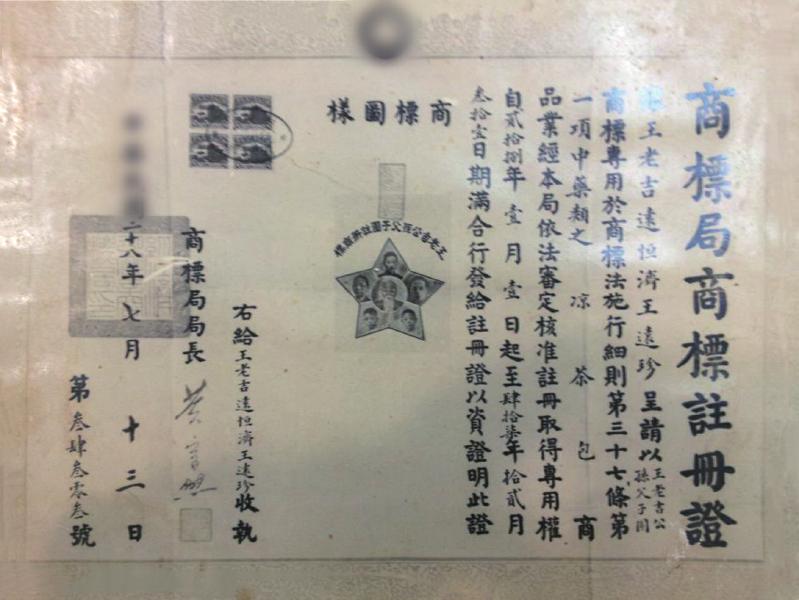 商標局商標註冊證
據王老吉遠恒濟王遠珍呈請以王老吉公孫父子圖
商標專用於商標法施行細則第三十七條第
一項中藥類之涼茶包商
品業經本局依法審定核准註冊取得專用權
自貳拾捌年壹月壹日起至肆拾柒年拾貳月
叁拾壹日期滿合行發給註冊證以資證明此證
商標圖樣
王老吉公孫父子圖註冊商標
右給王老吉遠恒濟王遠珍收執
商標局局長
二十八年七月十三日
第叁肆叁零叁號